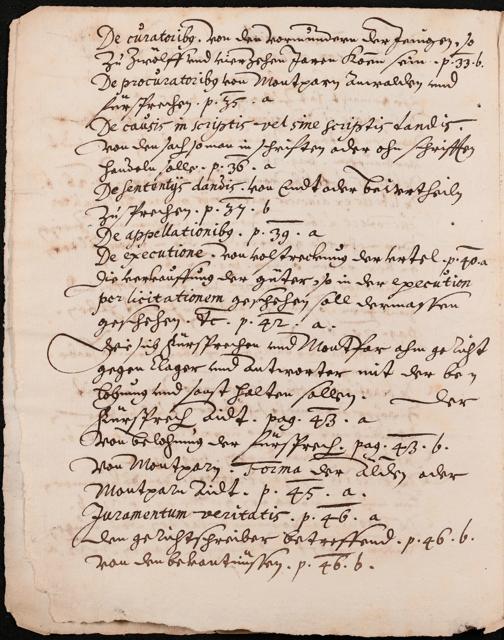 De curatoribq. von den vormundern der Jenigen, so
zu zwölff und vierzehen Jaren komen sein. p. 33. b.
De procuratoribq von Montparn Anwalden und
fürsprechen. p. 35. a
De causis in scriptis vel sine scriptis dandis.
von den sach so man in schrifften oder ohn schrifften
handeln solle. p. 36. a
De sententijs dandis. von Endt oder beiurtheiln
zu sprechen. p. 37. b
De appellationibq. p. 39. a
De executione. von volstreckung der urtel. p. 40. a
Die verkauffung der güter, so in der execution
per licitationem geschehen soll dermassen
geschehen. &c. p. 42. a.
Wie sich fürsprechen und Montpar ahm gericht
gegen Clager und Antworter mit der be
lohnung und sonst halten sollen. Der
fürsprech Aidt. pag. 43. a
von belohnung der fürsprech. pag. 43. b.
von Montparn. Forma der Aiden oder
Montparn Aidt. p. 45. a.
Juramentum veritatis. p. 46. a
Den gerichtschreiber betreffend. p. 46. b.
von den bekantnüssen. p. 46. b.